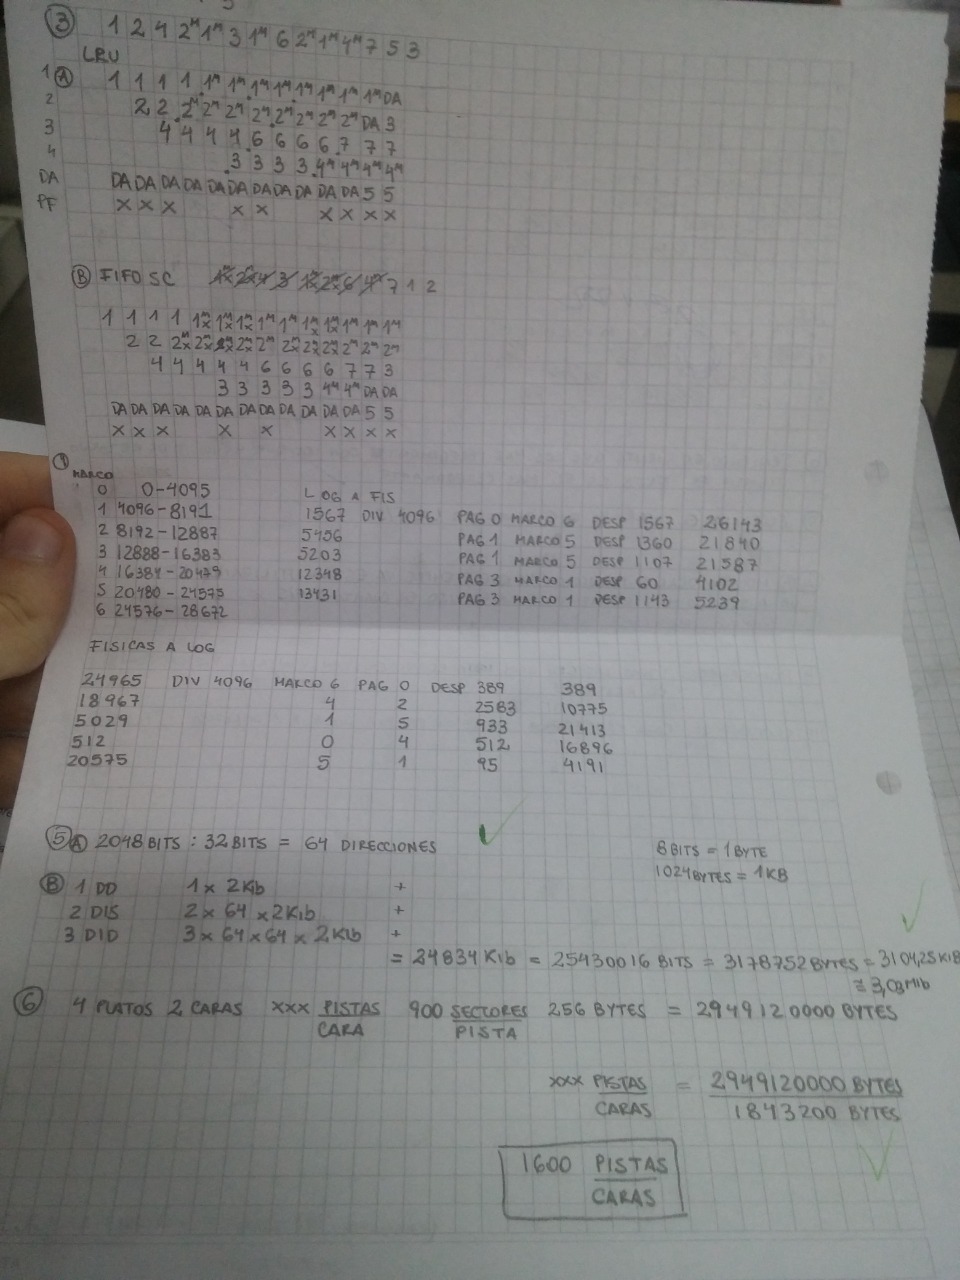 ③ 1 2 4 2ᴹ 1ᴹ 3 1ᴹ 6 2ᴹ 1ᴹ 4ᴹ 7 5 3
LRU
1 Ⓐ 1 1 1 1 1ᴹ 1ᴹ 1ᴹ 1ᴹ 1ᴹ 1ᴹ 1ᴹ 1ᴹ DA
2 2 2 2ᴹ 2ᴹ 2ᴹ 2ᴹ 2ᴹ 2ᴹ 2ᴹ 2ᴹ DA 3
3 4 4 4 4 6 6 6 6 7 7 7
4 3 3 3 3 4ᴹ 4ᴹ 4ᴹ 4ᴹ
DA DA DA DA DA DA DA DA DA DA DA DA 5 5
PF X X X X X X X X X
Ⓑ FIFO SC 7 1 2
1 1 1 1 1ᴹx 1ᴹx 1ᴹx 1ᴹ 1ᴹ 1ᴹx 1ᴹx 1ᴹ 1ᴹ 1ᴹ
2 2 2ᴹx 2ᴹx 2ᴹx 2ᴹx 2ᴹ 2ᴹx 2ᴹx 2ᴹx 2ᴹ 2ᴹ 2ᴹ
4 4 4 4 4 6 6 6 6 7 7 3
3 3 3 3 3 4ᴹ 4ᴹ DA DA
DA DA DA DA DA DA DA DA DA DA DA DA 5 5
X X X X X X X X X
MARCO
0 0-4095 LOG A FIS
1 4096-8191 1567 DIV 4096 PAG 0 MARCO 6 DESP 1567 26143
2 8192-12887 5456 PAG 1 MARCO 5 DESP 1360 21840
3 12888-16383 5203 PAG 1 MARCO 5 DESP 1107 21587
4 16384-20479 12348 PAG 3 MARCO 1 DESP 60 4102
5 20480-24575 13431 PAG 3 MARCO 1 DESP 1143 5239
6 24576-28672
FISICAS A LOG
24965 DIV 4096 MARCO 6 PAG 0 DESP 389 389
18967 4 2 2583 10775
5029 1 5 933 21413
512 0 4 512 16896
20575 5 1 95 4191
⑤ Ⓐ 2048 BITS : 32 BITS = 64 DIRECCIONES
8 BITS = 1 BYTE
1024 BYTES = 1 KB
Ⓑ 1 DD 1 x 2Kib +
2 DIS 2 x 64 x 2Kib +
3 DID 3 x 64 x 64 x 2Kib +
= 24834 Kib = 25430016 BITS = 3178752 BYTES = 3104,25 KiB
≅ 3,03 Mib
⑥ 4 PLATOS 2 CARAS xxx PISTAS/CARA 900 SECTORES/PISTA 256 BYTES = 2949120000 BYTES
xxx PISTAS/CARAS = 2949120000 BYTES/1843200 BYTES
1600 PISTAS/CARAS